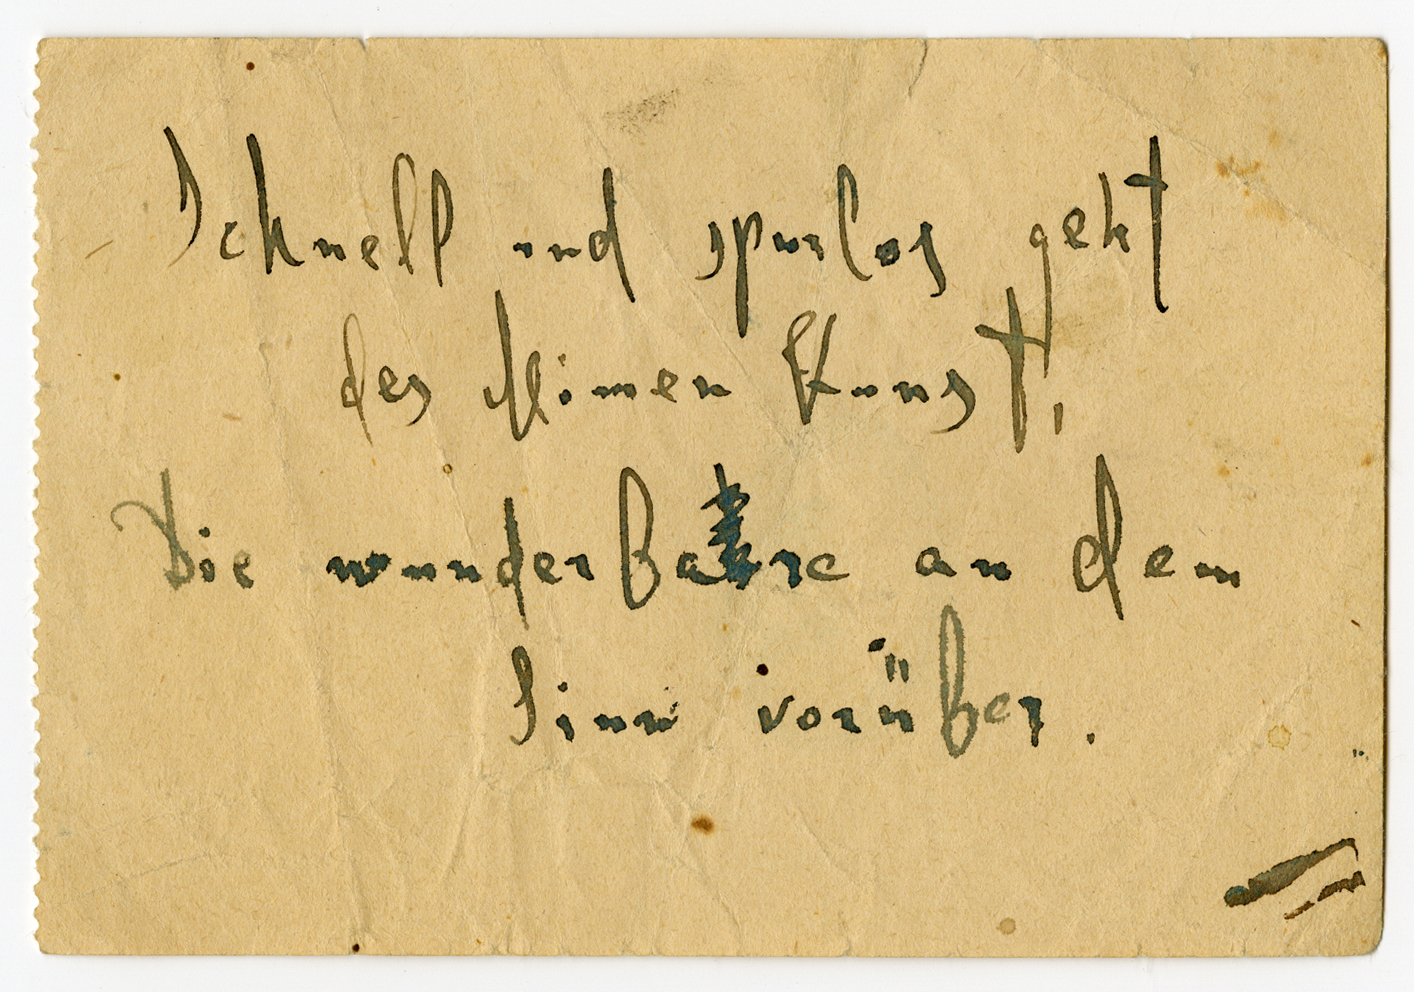 Schnell und spurlos geht
des Mimen Kunst,
Die wunderbare an dem
Sinn vorüber.